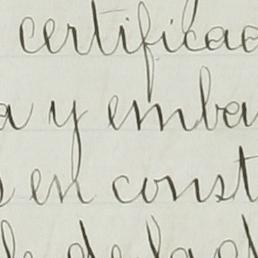 certificad
a y emba
s en const
de de la of